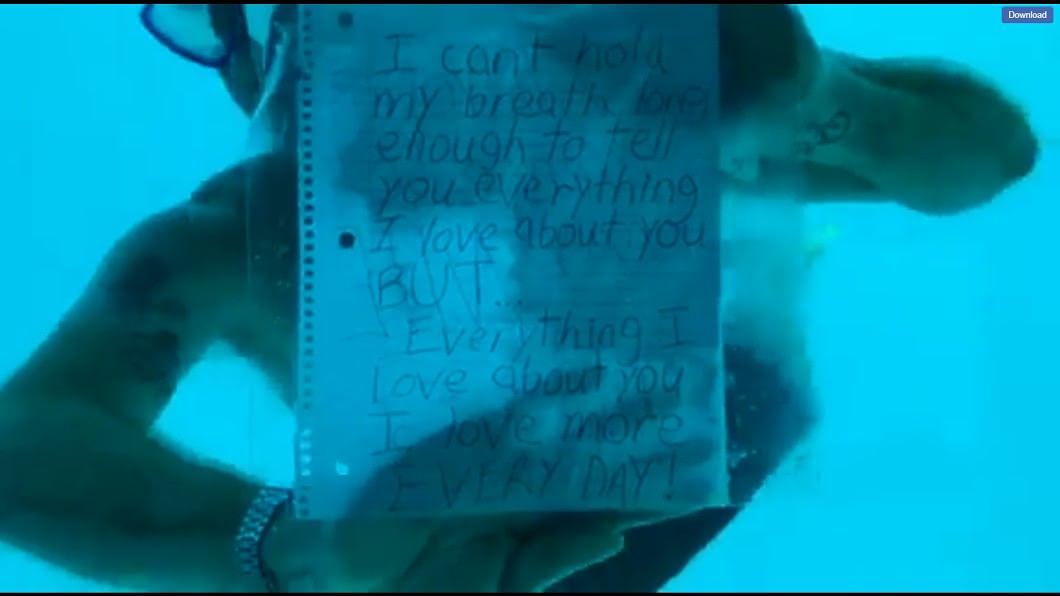 Download
I can't hold
my breath long
enough to tell
you everything
I love about you
BUT...
Everything I
Love about you
I love more
EVERY DAY!